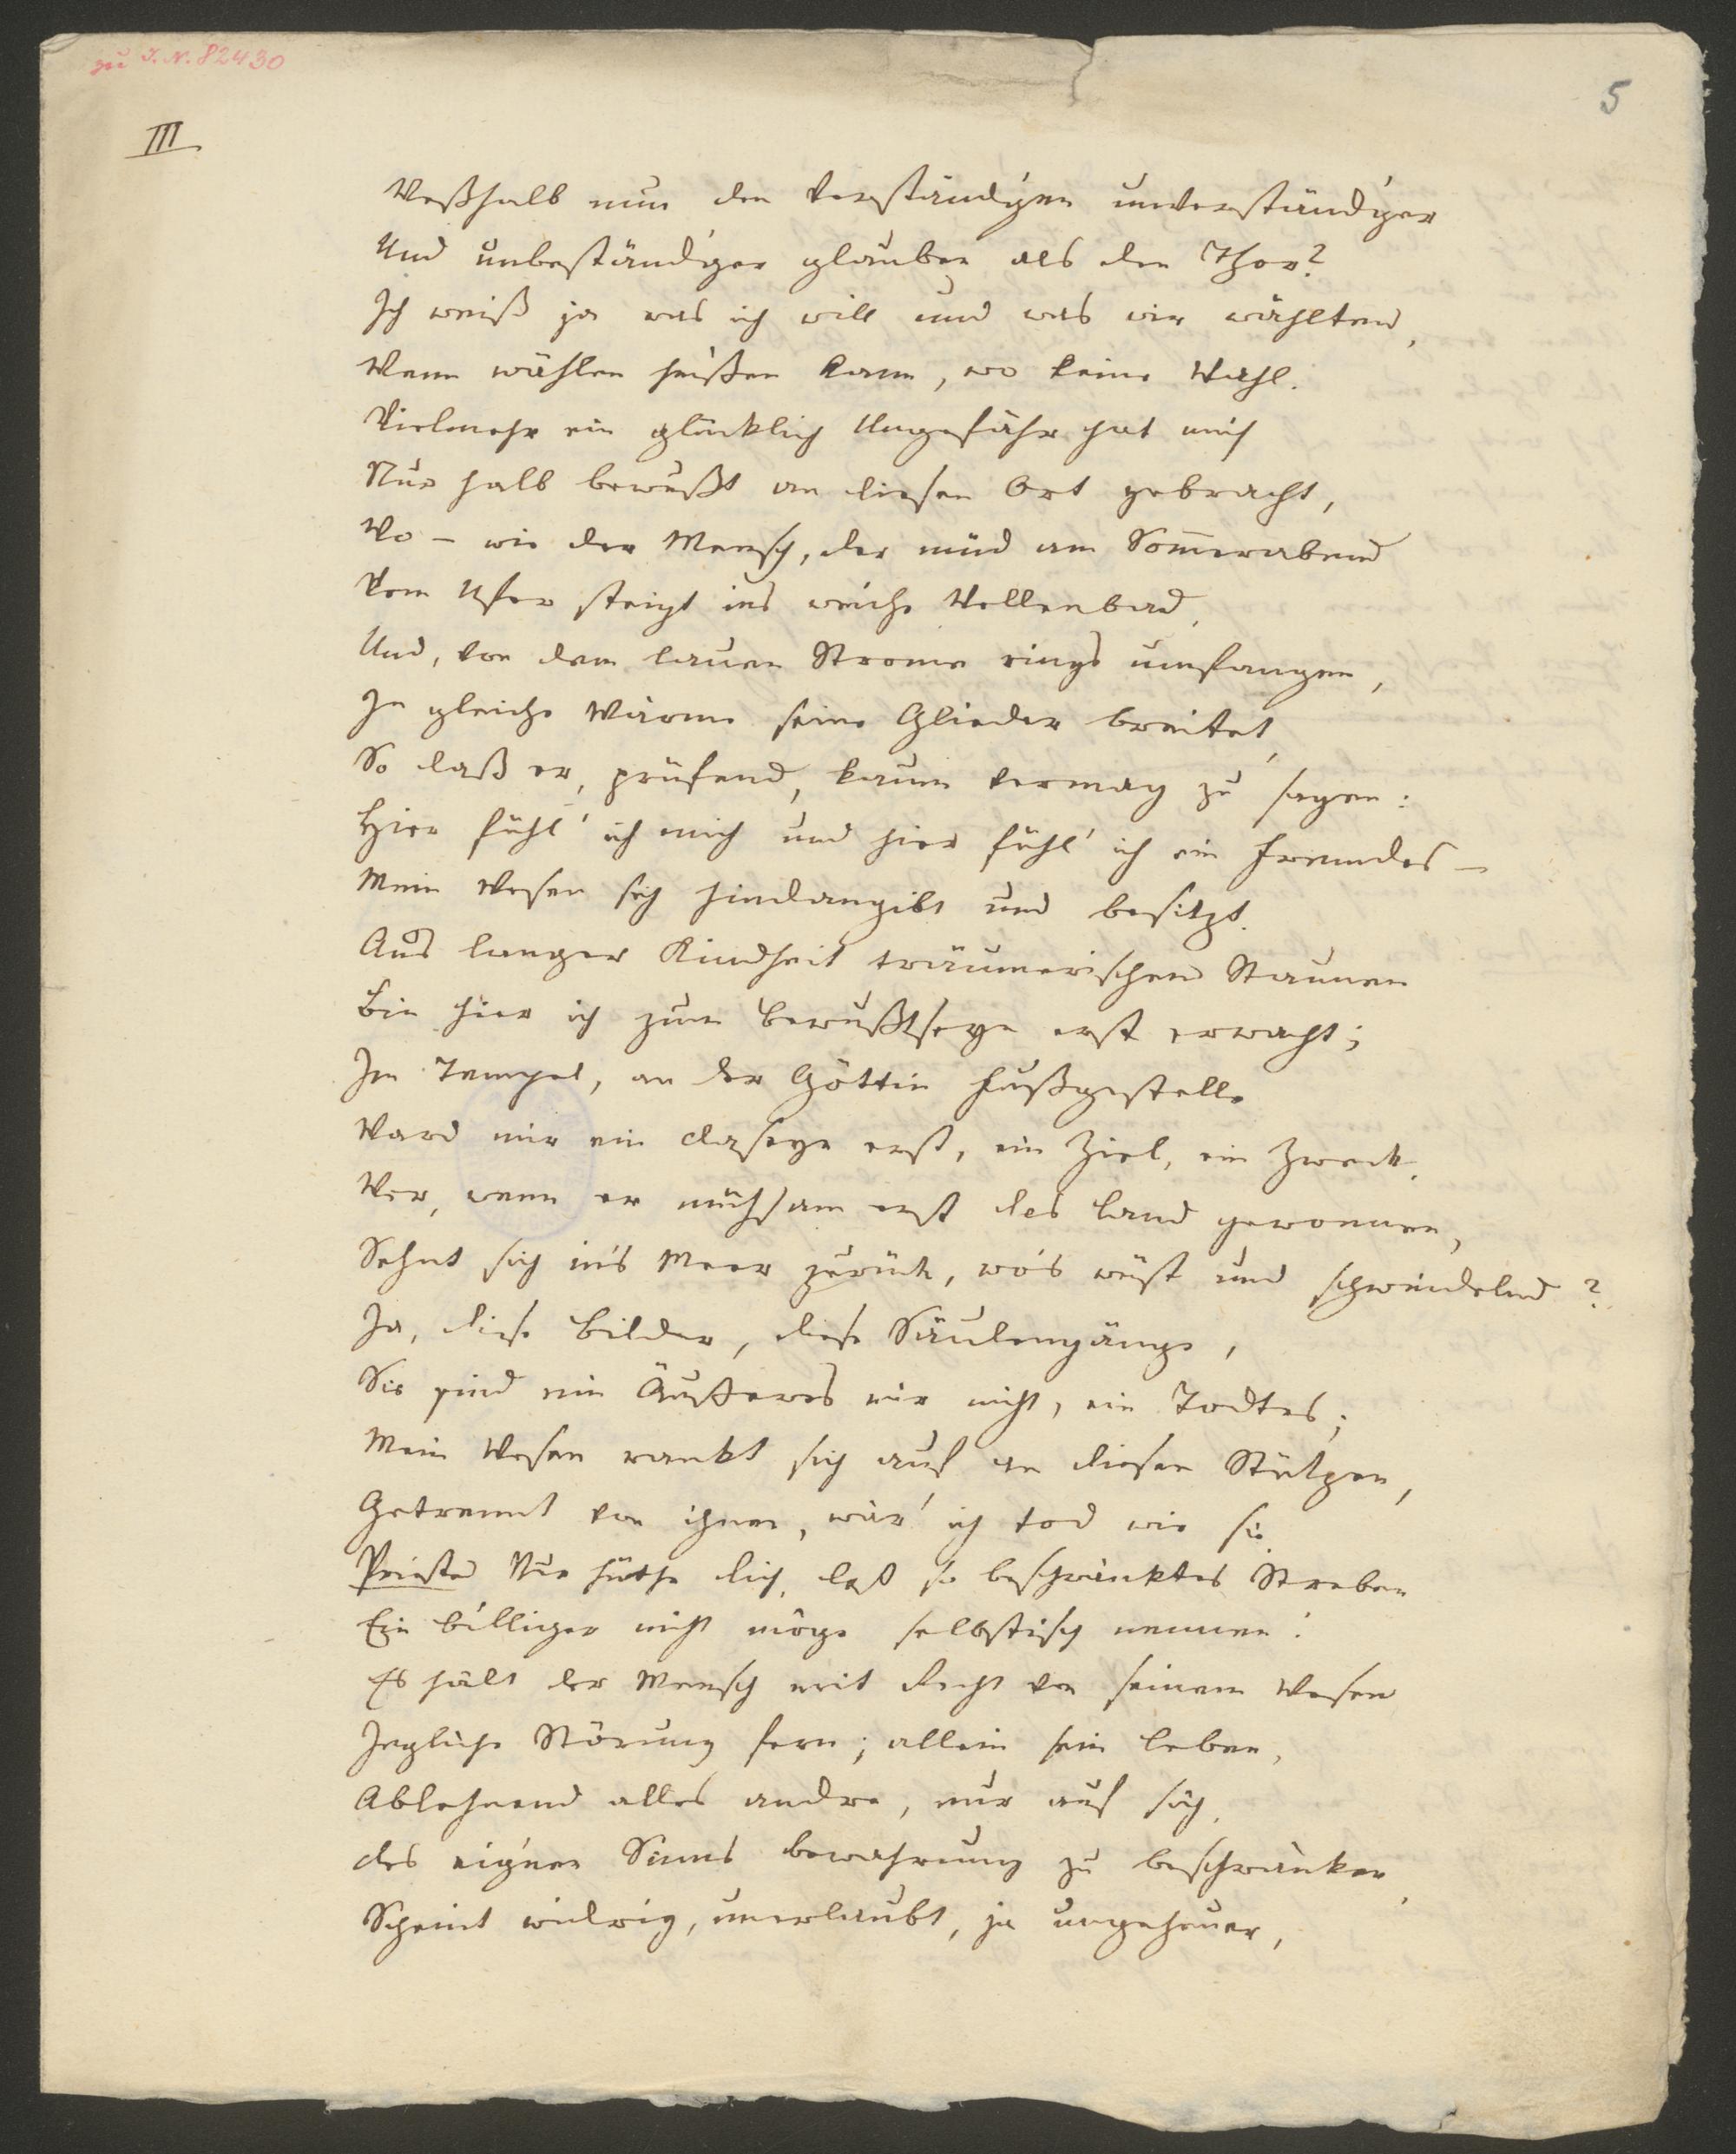 zu I. N. 82430
5
III
Weßhalb nun den Verständ'gen unverständ'ger
Und unbeständ'ger glauben als den Thor?
Ich weiß ja was ich will und was wir wählten,
Wenn wählen heißen kann, wo keine Wahl.
Vielmehr ein glücklich Ungefähr hat mich
Nur halb bewußt an diesen Ort gebracht,
Wo – wie der Mensch, der müd am Som̄erabend
Vom Ufer steigt ins weiche Wellenbad,
Und, von dem lauen Strome rings umfangen,
In gleiche Wärme seine Glieder breitet,
So daß er, prüfend, kaum vermag zu sagen:
Hier fühl' ich mich und hier fühl' ich ein Fremdes –
Mein Wesen sich hindangibt und besitzt.
Aus langer Kindheit träumerischem Staunen
Bin hier ich zum Bewußtseyn erst erwacht;
Im Tempel, an der Göttin Fußgestelle
Ward mir ein Daseyn erst, ein Ziel, ein Zweck.
Wer, wenn er mühsam erst das Land gewonnen,
Sehnt sich in's Meer zurück, wo's wüst und schwindelnd?
Ja, diese Bilder, diese Säulengänge,
Sie sind ein Äußeres mir nicht, ein Todtes;
Mein Wesen rankt sich auf an diesen Stützen,
Getrennt von ihnen, wär' ich tod wie sie.
Priester Nur hüthe dich, daß so beschränktes Streben
Ein billiger nicht möge selbstisch nennen!
Es hält der Mensch mit Recht von seinem Wesen
Jegliche Störung fern; allein sein Leben,
Ablehnend alles andre, nur auf sich,
Des eig'nen Sinns Bewahrung zu beschränken,
Scheint widrig, unerlaubt, ja ungeheuer,